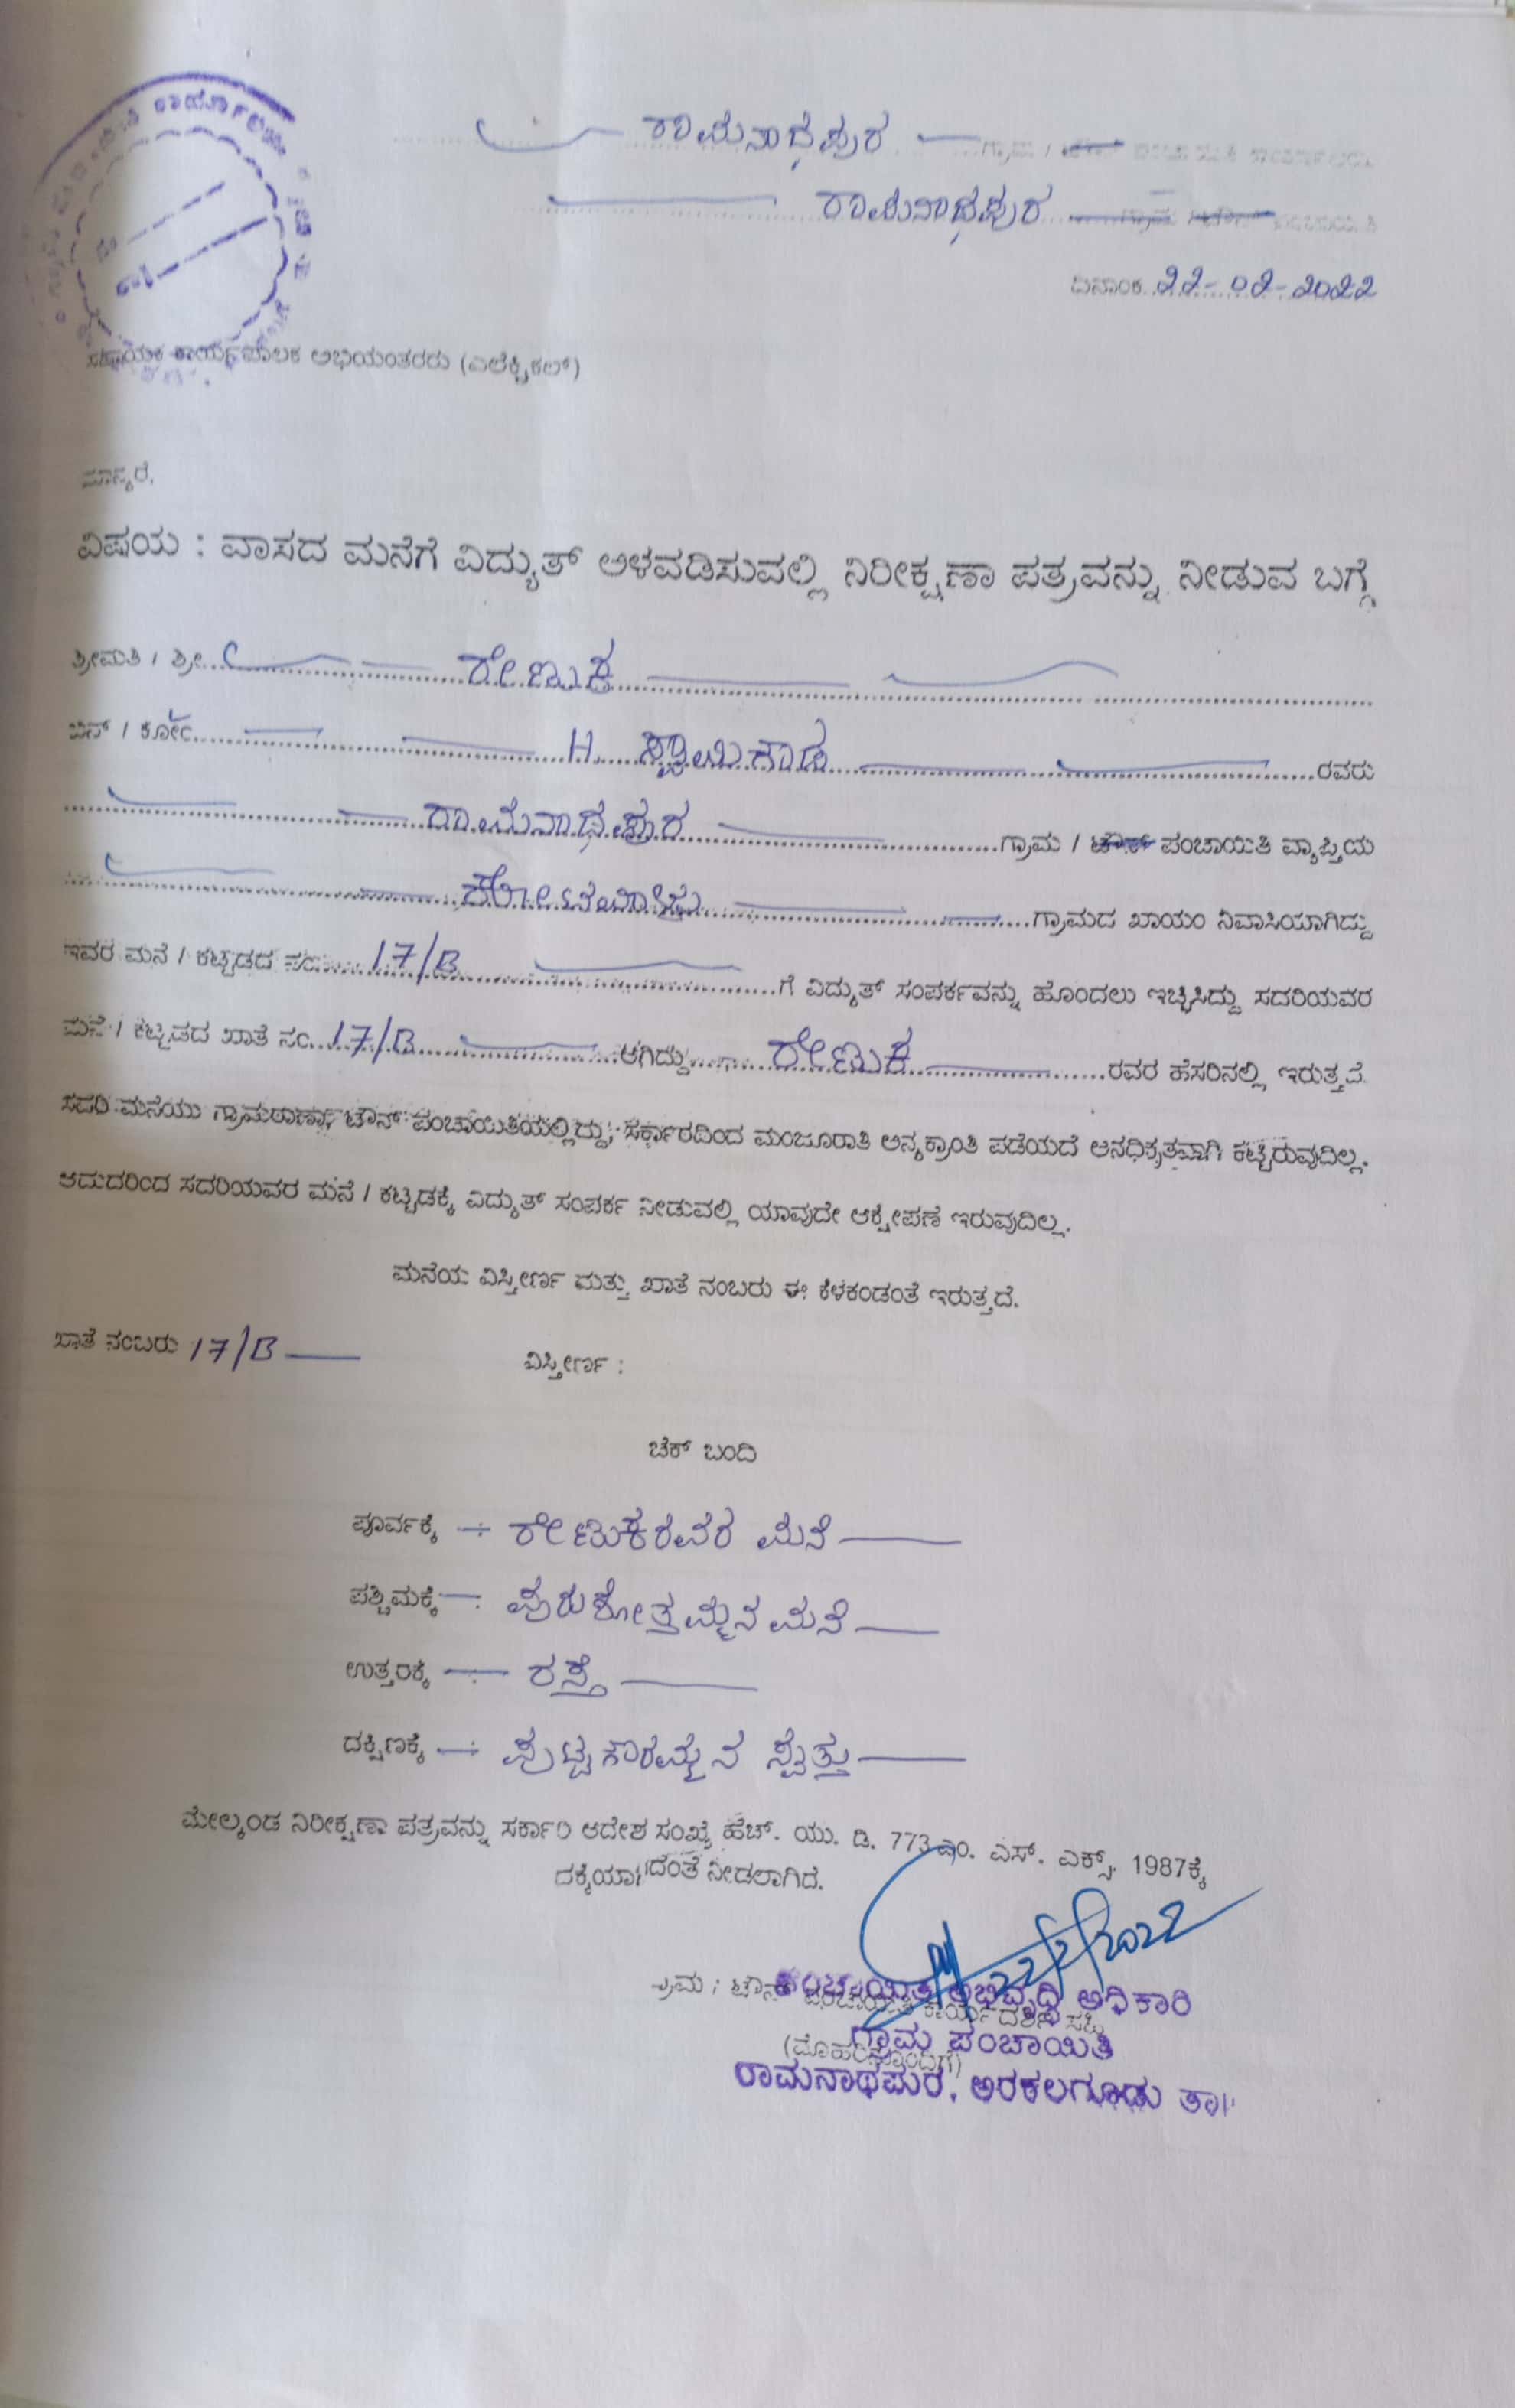 ರಾಮನಾಥಪುರ ಗ್ರಾಮ / ಪಂಚಾಯಿತಿ ಕಾರ್ಯಾಲಯ
ರಾಮನಾಥಪುರ ಗ್ರಾಮ / ಟೌನ್ ಪಂಚಾಯಿತಿ
ದಿನಾಂಕ 22-02-2022
ಸಹಾಯಕ ಕಾರ್ಯಪಾಲಕ ಅಭಿಯಂತರರು (ಎಲೆಕ್ಟ್ರಿಕಲ್)
ಮಾನ್ಯರೆ,
ವಿಷಯ : ವಾಸದ ಮನೆಗೆ ವಿದ್ಯುತ್ ಅಳವಡಿಸುವಲ್ಲಿ ನಿರೀಕ್ಷಣಾ ಪತ್ರವನ್ನು ನೀಡುವ ಬಗ್ಗೆ
ಶ್ರೀಮತಿ / ಶ್ರೀ ರೇಣುಕ
ಬಿನ್ / ಕೋಂ H. ಸ್ವಾಮಿ ರವರು
ರಾಮನಾಥಪುರ ಗ್ರಾಮ / ಟೌನ್ ಪಂಚಾಯಿತಿ ವ್ಯಾಪ್ತಿಯ
ಗ್ರಾಮದ ಖಾಯಂ ನಿವಾಸಿಯಾಗಿದ್ದು
ಇವರ ಮನೆ / ಕಟ್ಟಡದ ನಂ. 17/B ಗೆ ವಿದ್ಯುತ್ ಸಂಪರ್ಕವನ್ನು ಹೊಂದಲು ಇಚ್ಛಿಸಿದ್ದು ಸದರಿಯವರ
ಮನೆ / ಕಟ್ಟಡದ ಖಾತೆ ನಂ. 17/B ಆಗಿದ್ದು ರೇಣುಕ ರವರ ಹೆಸರಿನಲ್ಲಿ ಇರುತ್ತದೆ.
ಸದರಿ ಮನೆಯು ಗ್ರಾಮಠಾಣಾ, ಟೌನ್ ಪಂಚಾಯಿತಿಯಲ್ಲಿದ್ದು, ಸರ್ಕಾರದಿಂದ ಮಂಜೂರಾತಿ ಅನ್ಯಕ್ರಾಂತಿ ಪಡೆಯದೆ ಅನಧಿಕೃತವಾಗಿ ಕಟ್ಟಿರುವುದಿಲ್ಲ.
ಆದುದರಿಂದ ಸದರಿಯವರ ಮನೆ / ಕಟ್ಟಡಕ್ಕೆ ವಿದ್ಯುತ್ ಸಂಪರ್ಕ ನೀಡುವಲ್ಲಿ ಯಾವುದೇ ಆಕ್ಷೇಪಣೆ ಇರುವುದಿಲ್ಲ.
ಮನೆಯ ವಿಸ್ತೀರ್ಣ ಮತ್ತು ಖಾತೆ ನಂಬರು ಈ ಕೆಳಕಂಡಂತೆ ಇರುತ್ತದೆ.
ಖಾತೆ ನಂಬರು 17/B ವಿಸ್ತೀರ್ಣ :
ಚೆಕ್ ಬಂದಿ
ಪೂರ್ವಕ್ಕೆ : ರೇಣುಕರವರ ಮನೆ
ಪಶ್ಚಿಮಕ್ಕೆ : ಪುರುಶೋತ್ತಮ್ಮನ ಮನೆ
ಉತ್ತರಕ್ಕೆ : ರಸ್ತೆ
ದಕ್ಷಿಣಕ್ಕೆ : ಪುಟ್ಟಗೌರಮ್ಮನ ಸ್ವತ್ತು
ಮೇಲ್ಕಂಡ ನಿರೀಕ್ಷಣಾ ಪತ್ರವನ್ನು ಸರ್ಕಾರಿ ಆದೇಶ ಸಂಖ್ಯೆ ಹೆಚ್. ಯು. ಡಿ. 773 ಎಂ. ಎಸ್. ಎಕ್ಸ್. 1987ಕ್ಕೆ
ದಕ್ಕೆಯಾಗದಂತೆ ನೀಡಲಾಗಿದೆ.
22/2/2022
ಗ್ರಾಮ / ಟೌನ್ ಪಂಚಾಯಿತಿ ಕಾರ್ಯದರ್ಶಿ ಸಹಿ
(ಮೊಹರಿನೊಂದಿಗೆ)
ಪಂಚಾಯಿತಿ ಅಭಿವೃದ್ಧಿ ಅಧಿಕಾರಿ
ಗ್ರಾಮ ಪಂಚಾಯಿತಿ
ರಾಮನಾಥಪುರ, ಅರಕಲಗೂಡು ತಾ||